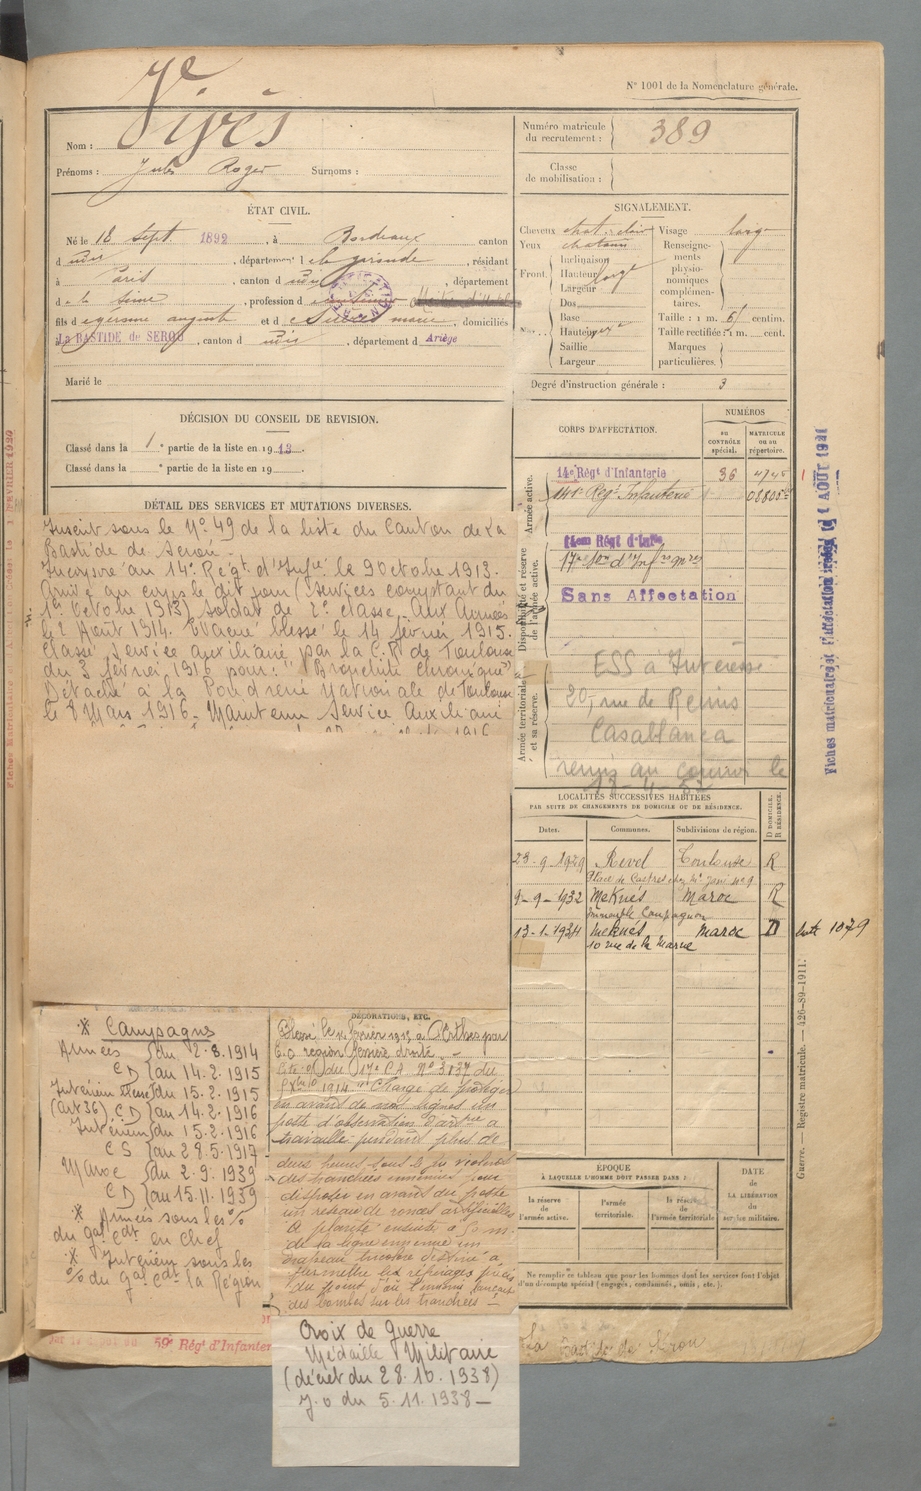 N° 1001 de la Nomenclature générale.
Nom :
Prénoms : Jules Roger Surnoms :
Numéro matricule du recrutement : 389
Classe de mobilisation :
ÉTAT CIVIL.
Né le 18 sept. 1892, à Bordeaux canton
d udis, département de la gironde, résidant
à Paris canton d udis, département
d e la Seine, profession d
fils d et d marie, domiciliés
à La BASTIDE de SEROU, canton d udis, département d Ariège
Marié le
SIGNALEMENT.
Cheveux chat. clair
Yeux chatains
Front. Inclinaison
Hauteur large
Largeur
Dos
Base
Hauteur
Saillie
Largeur
Visage large
Renseignements physionomiques complémentaires.
Taille : 1 m. 61 centim.
Taille rectifiée : 1 m. cent.
Marques particulières.
Degré d'instruction générale : 3
DÉCISION DU CONSEIL DE REVISION.
Classé dans la 1e partie de la liste en 1913.
Classé dans la e partie de la liste en 19
DÉTAIL DES SERVICES ET MUTATIONS DIVERSES.
Inscrit sous le N° 49 de la liste du Canton de La
Bastide de Serou.
Incorporé au 14e Régt d'Infie le 9 octobre 1913.
Arrivé au corps le dit jour (services comptant du
1er Octobre 1913) soldat de 2e classe. Aux Armées
le 2 Août 1914. Evacué blessé le 14 février 1915.
Classé service auxiliaire par la C.R de Toulouse
du 3 février 1916 pour : "Bronchite chronique"
Détaché à la Poudrerie Nationale de Toulouse
le 8 Mars 1916. Maintenu Service Auxiliaire
CORPS D'AFFECTATION.
NUMÉROS
au contrôle spécial.
matricule ou au répertoire.
Armée active.
14e Régt d'Infanterie 36
Régt Infanterie
Disponibilité et réserve de l'armée active.
Régt d'Infie
Sans Affectation
Armée territoriale et sa réserve.
ESS a Interessé
20, rue de Reims
Casablanca
remis au courrier le
LOCALITÉS SUCCESSIVES HABITÉES
PAR SUITE DE CHANGEMENTS DE DOMICILE OU DE RÉSIDENCE.
Dates. Communes. Subdivisions de région. D domicile. R résidence.
23-9-1929 Revel Toulouse R
Place de Castres chez
9-9-1932 Meknés Maroc R
immeuble Compagnon
13-1-1934 Meknés Maroc D
10 rue de la Marne
* Campagnes
Armées du 2-8-1914
CD au 14-2-1915
Intérieur du 15-2-1915
(art 36) CD au 14-2-1916
Intérieur du 15-2-1916
CS au 28-5-1917
Maroc du 2-9-1939
CD au 15-11-1939
* Armées sous les %
du gal cdt en chef
* Intérieur sous les
% du gal cdt la Région
DÉCORATIONS, ETC.
Blessé le
E.O région fessière droite.
Cité du 17e C.A N° 3837 du
1914 "Chargé de
en avant de nos lignes un
poste d'observation d'artrie a
travaillé pendant plus de
deux heures sous le feu violent
des tranchées ennemies pour
disposer en avant du poste
un réseau de ronces artificielles
A planté ensuite à 50 m.
de la ligne ennemie un
drapeau tricolore destiné à
permettre les repérages précis
du point d'où l'ennemi lançait
des bombes sur les tranchées –
Croix de guerre
Médaille Militaire
(décret du 28.10.1938)
J.o du 5.11.1938 –
ÉPOQUE
À LAQUELLE L'HOMME DOIT PASSER DANS :
la réserve de l'armée active.
l'armée territoriale.
la réserve de l'armée territoriale
DATE DE LA LIBÉRATION du service militaire.
Ne remplir ce tableau que pour les hommes dont les services font l'objet
d'un décompte spécial (engagés, condamnés, omis, etc.).
59e Régt d'Infanter
La Bastide de Serou
Guerre. — Registre matricule. — 426-89-1911.